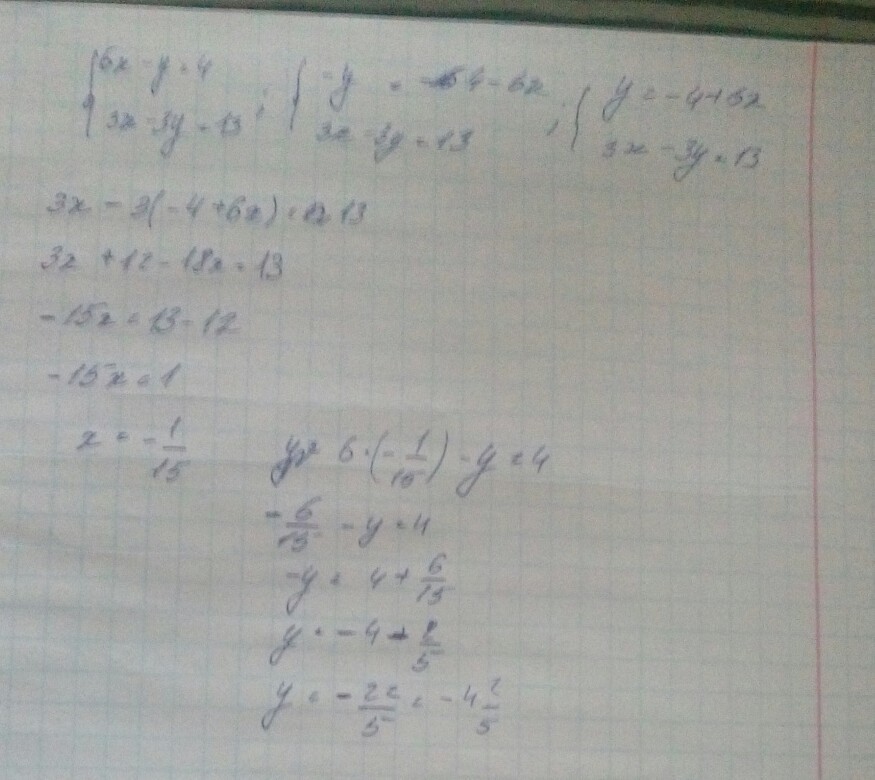 {6x - y = 4 ; { -y = 4 - 6x ; { y = -4 + 6x
3x - 3y = 13 3x - 3y = 13 3x - 3y = 13
3x - 3(-4 + 6x) = 13
3x + 12 - 18x = 13
-15x = 13 - 12
-15x = 1
x = -1/15 6 · (-1/15) - y = 4
-6/15 - y = 4
-y = 4 + 6/15
y = -4 - 2/5
y = -22/5 = -4 2/5